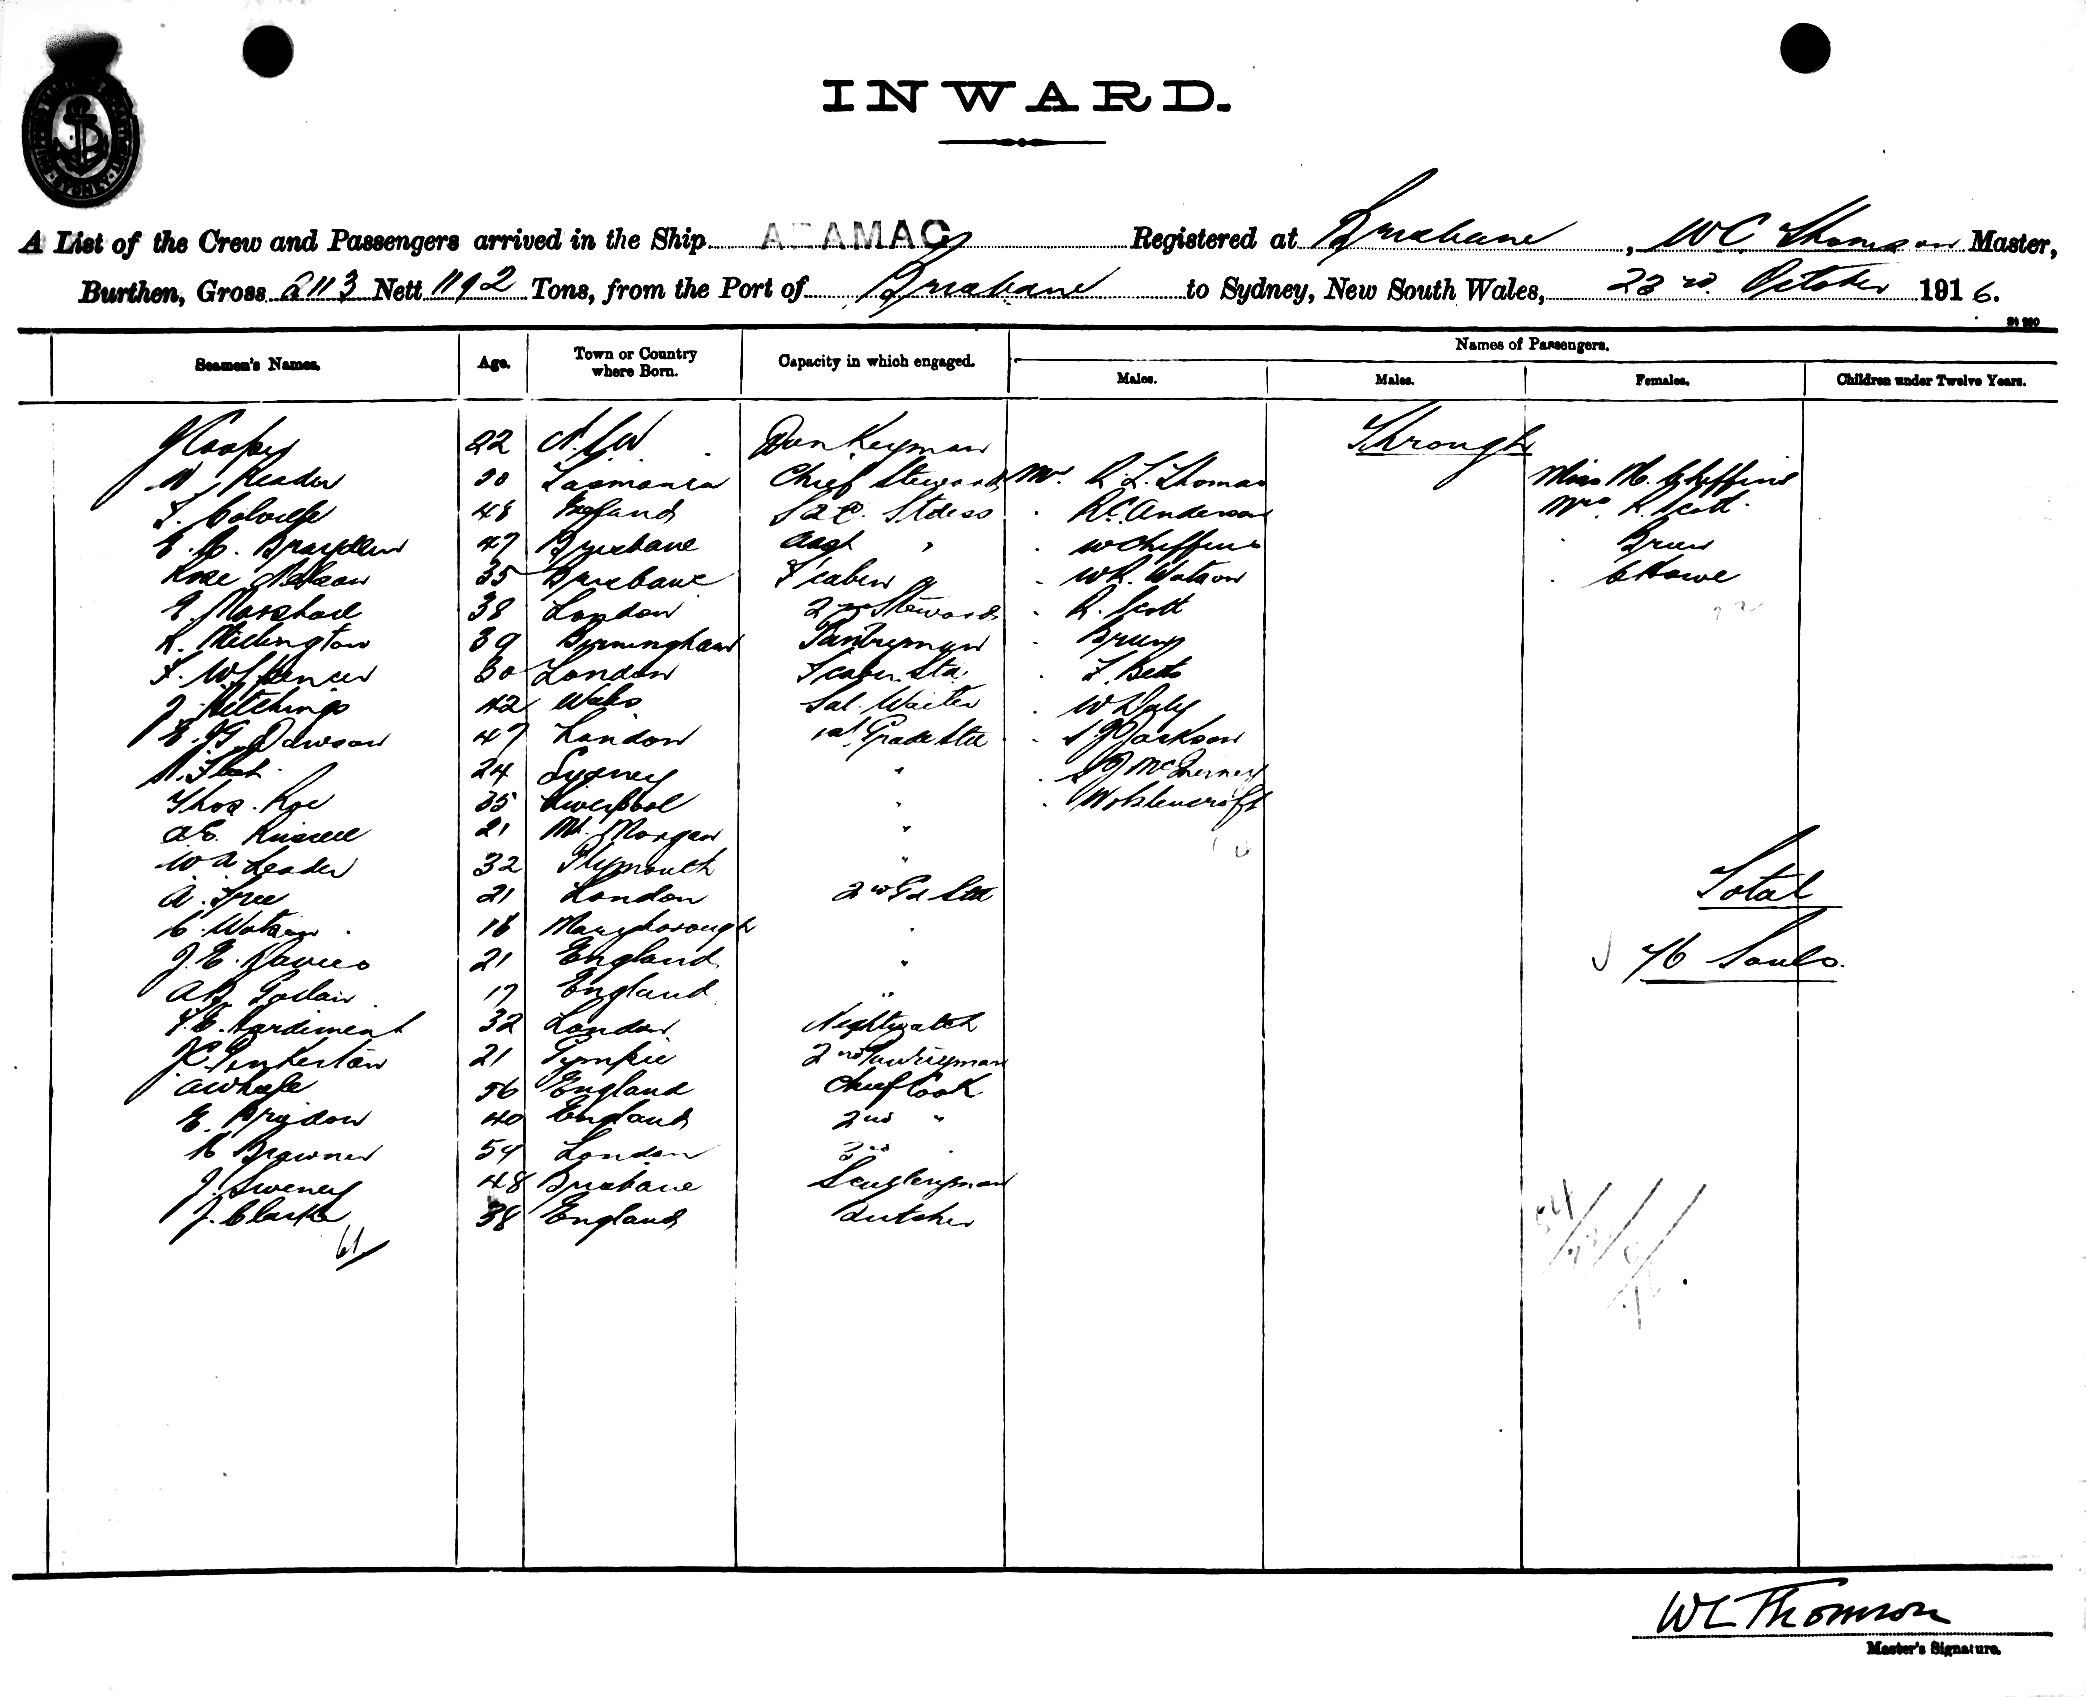 INWARD.
A List of the Crew and Passengers arrived in the Ship Registered at Brisbane, W C Thomson Master,
Burthen, Gross 2113 Nett 1192 Tons, from the Port of Brisbane to Sydney, New South Wales, 23rd October 1916.
Seamen's Names. Age. Town or Country where Born. Capacity in which engaged. Names of Passengers.
Males. Males. Females. Children under Twelve Years.
J Cooper 22 N.S.W Through
Reader Tasmania Chief Steward Mr R. L. Thomas Miss M. Chiffins
48 England R C. Anderson Mrs R. Scott
47 Brisbane Asst " W Chiffins
Rose Nelson 35 Brisbane W R. Watson C Howe
Marshall 38 London 2nd Steward R. Scott
39 Birmingham Pantryman
F. W. Spencer 30 London F. Betts
J. Hitchings 42 Wales Sal. Waiter W Daly
E. G. Dawson 47 London 1st Grade Std S J Jackson
24 Sydney "
Thos. Roe 35 Liverpool " Wolstencroft
A E. Russell 21 Mt. Morgan "
W A Leader 32 Plymouth " Total
A. Free 21 London 2nd Gd Std
C. Watson 18 Maryborough "
J. E. Davies 21 England " 76 Souls.
17 England "
F. E. Hardiment 32 London Nightwatch
J C Pinkerton 21 Gympie 2nd Pantryman
56 England Chief Cook
E. Brigdon 40 England 2nd "
Browner 54 London 3rd
J. Sweney 48 Brisbane Sculleryman
J. Clarke 38 England Butcher
61
W C Thomson
Master's Signature.